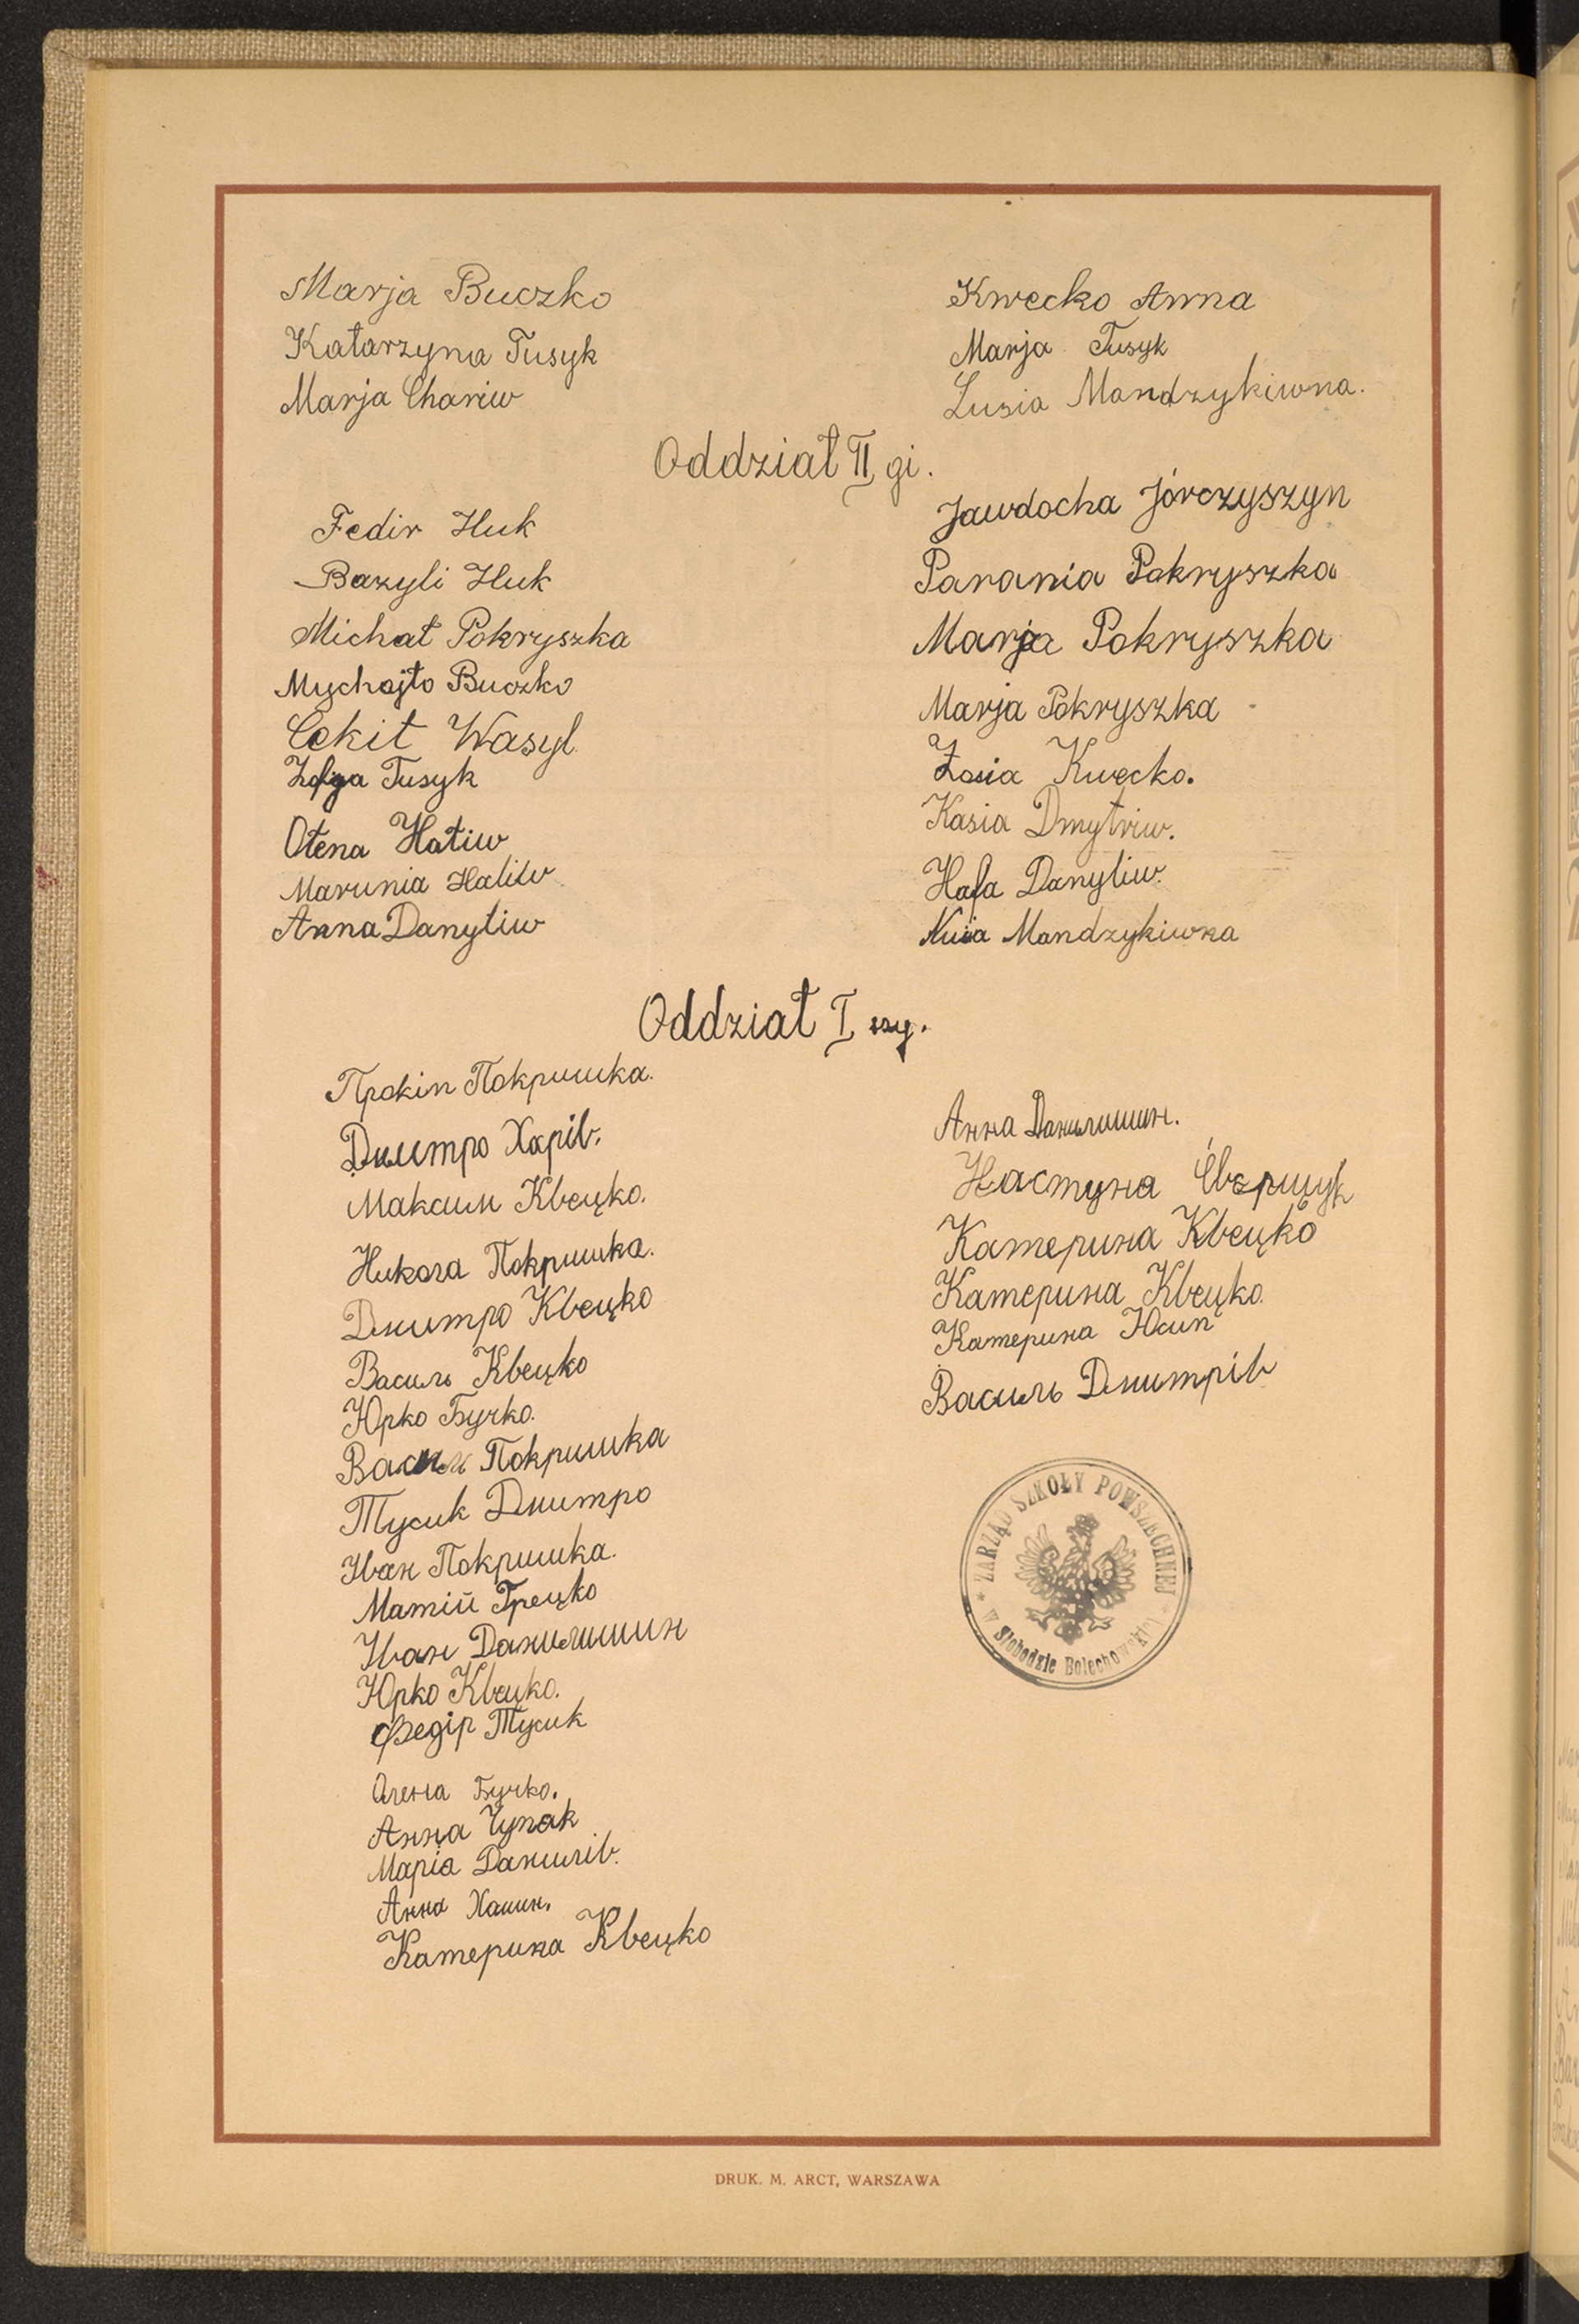 Marja Buczko
Katarzyna Tusyk
Marja Chariw
Kwecko Anna
Marja Tusyk
Lusia Mandzykiwna.
Oddział II gi.
Fedir Huk
Bazyli Huk
Michał Pokryszka
Mychajło Buczko
Cekit Wasyl
Zofja Tusyk
Ołena Hatiw
Marunia Haliw
Anna Danyliw
Jawdocha Jórczyszyn
Parania Pokryszka
Marja Pokryszka
Marja Pokryszka
Zosia Kwecko.
Kasia Dmytriw.
Hafa Danyliw
Mandzykiwna
Oddział I szy.
Прокіп Покришка.
Дмитро Харів.
Максим Квецко.
Никола Покришка.
Дмитро Квецко
Василь Квецко
Юрко Бучко.
Василь Покришка
Тусик Дмитро
Иван Покришка.
Матій Грецко
Иван Данилишин
Юрко Квецко.
Федір Тусик
Олена Бучко.
Анна Чупак
Марія Данилів.
Анна
Катерина Квецко
Анна Данилишин.
Настуна
Катерина Квецко
Катерина Квецко.
Катерина Юсип
Василь Дмитрів
* ZARZĄD SZKOŁY POWSZECHNEJ *
w Słobodzie Bolechowskiej
DRUK. M. ARCT, WARSZAWA